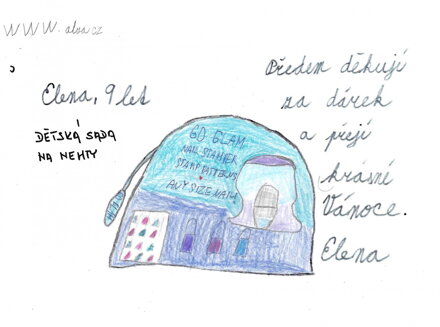 WWW.alza.cz
Elena, 9 let
DĚTSKÁ SADA
NA NEHTY
GO GLAM
NAIL STAMPER
STAMP PATTERNS
ANY SIZE NAIL
Předem děkuji
za dárek
a přeji
krásné
Vánoce.
Elena